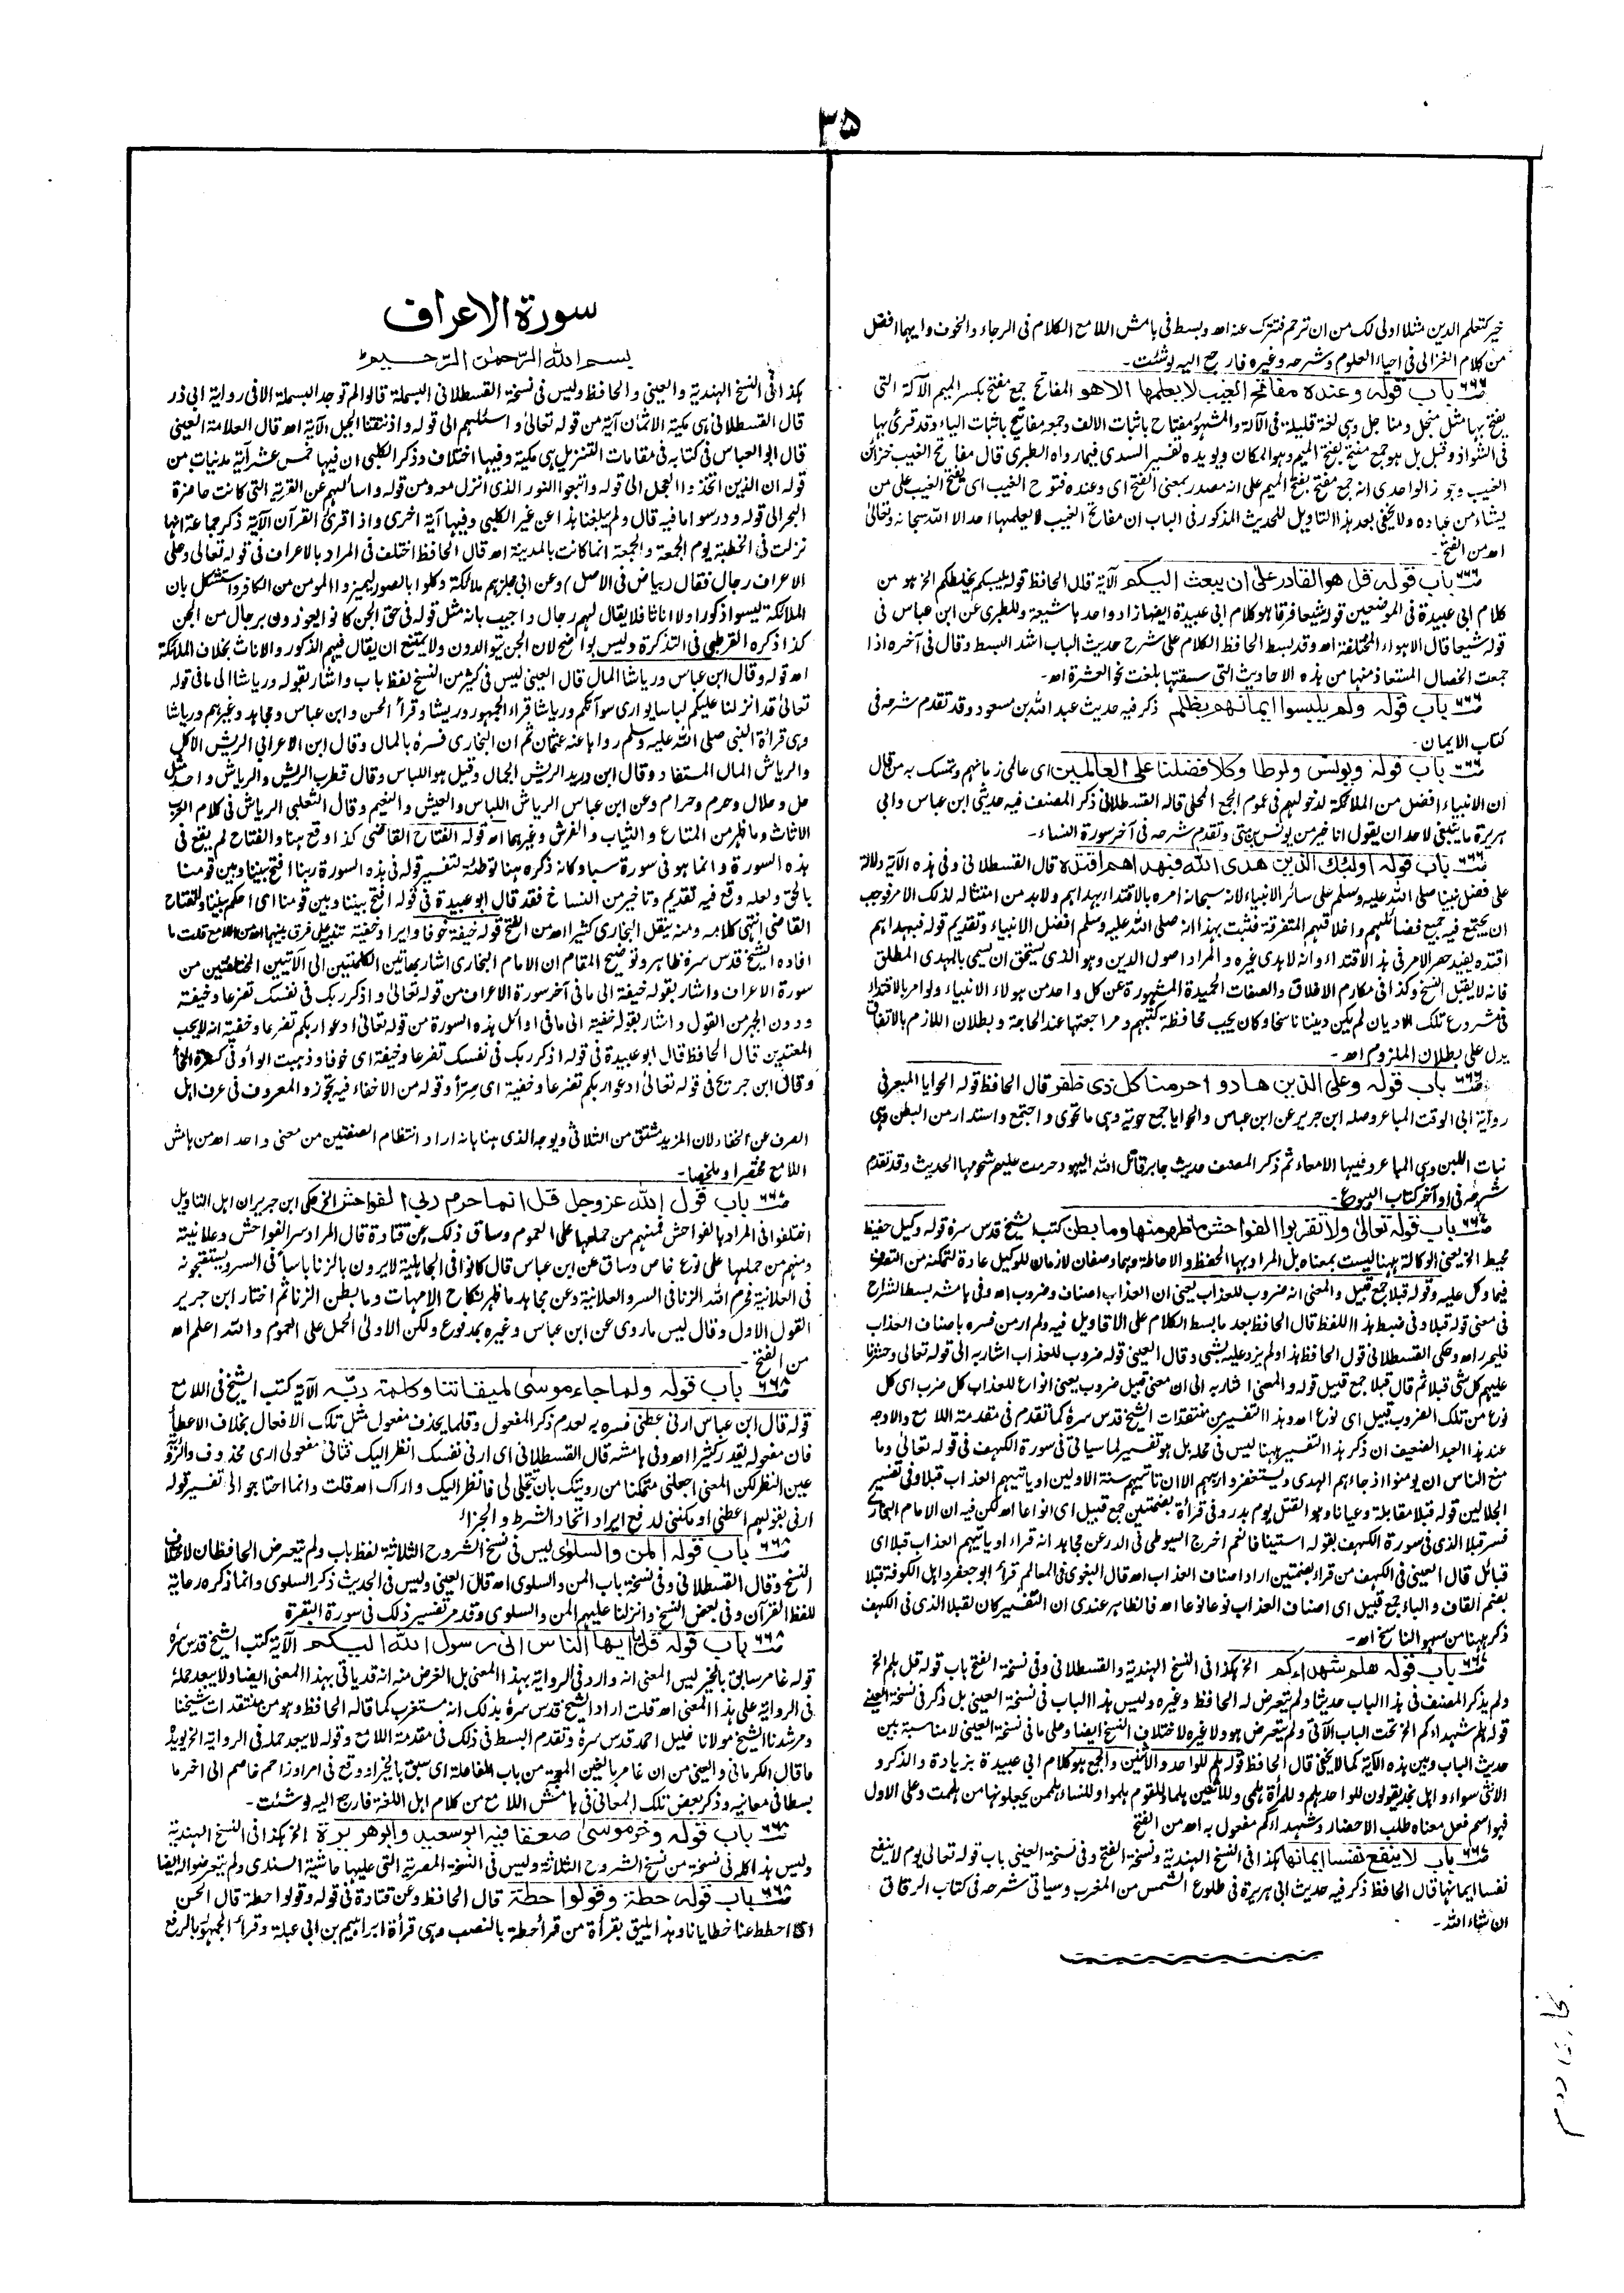 ٣٥
خير كتعلم الدين مثلا اولى لك من ان ترحم فتترك عنه اه وبسط فى هامش اللامع الكلام فى الرجاء والخوف وايهما افضل
من كلام الغزالى فى احياء العلوم وشرحه وغيره فارجع اليه لو شئت۔
٦٦٦ باب قوله وعنده مفاتح الغيب لا يعلمها الا هو المفاتح جمع مفتح بكسر الميم الآلة التى
يفتح بها مثل منجل ومناجل وهى لغة قليلة فى الآلة والمشهور مفتاح باثبات الالف وجمعه مفاتيح باثبات الياء وقد قرئ بها
فى الشواذ وقيل بل هو جمع مفتح بفتح الميم وهو المكان ويؤيده تفسير السدى فيما رواه الطبرى قال مفاتح الغيب خزائن
الغيب وجوز الواحدى انه جمع مفتح بفتح الميم على انه مصدر بمعنى الفتح اى وعنده فتوح الغيب اى يفتح الغيب على من
يشاء من عباده ولا يخفى بعد هذا التاويل للحديث المذكور فى الباب ان مفاتح الغيب لا يعلمها احد الا الله سبحانه وتعالى
اه من الفتح۔
٦٦٦ باب قوله قل هو القادر على ان يبعث اليكم الآية قال الحافظ قوله يلبسكم يخلطكم الخ هو من
كلام ابى عبيدة فى الموضعين قوله شيعا فرقا هو كلام ابى عبيدة ايضا زاد واحدها شيعة وللطبرى عن ابن عباس فى
قوله شيعا قال الاهواء المختلفة اه وقد بسط الحافظ الكلام على شرح حديث الباب اشد البسط وقال فى آخره اذا
جمعت الخصال المستعاذ منها من هذه الاحاديث التى سقتها بلغت نحو العشرة اه۔
٦٦٦ باب قوله ولم يلبسوا ايمانهم بظلم ذكر فيه حديث عبد الله بن مسعود وقد تقدم شرحه فى
كتاب الايمان۔
٦٦٦ باب قوله ويونس ولوطا وكلا فضلنا على العالمين اى عالمى زمانهم وتمسك به من قال
ان الانبياء افضل من الملائكة لدخولهم فى عموم الجمع المحلى قاله القسطلانى ذكر المصنف فيه حديثى ابن عباس وابى
هريرة ما ينبغى لاحد ان يقول انا خير من يونس بن متى وتقدم شرحه فى آخر سورة النساء۔
٦٦٦ باب قوله اولئك الذين هدى الله فبهداهم اقتده قال القسطلانى وفى هذه الآية دلالة
على فضل نبينا صلى الله عليه وسلم على سائر الانبياء لانه سبحانه امره بالاقتداء بهداهم ولا بد من امتثاله لذلك الامر فوجب
ان يجتمع فيه جميع فضائلهم واخلاقهم المتفرقة فثبت بهذا انه صلى الله عليه وسلم افضل الانبياء وتقديم قوله فبهداهم
اقتده يفيد حصر الامر فى هذا الاقتداء وانه لا هدى غيره والمراد اصول الدين وهو الذى يستحق ان يسمى بالهدى المطلق
فانه لا يقبل النسخ وكذا فى مكارم الاخلاق والصفات الحميدة المشهورة عن كل واحد من هؤلاء الانبياء ولو امر بالاقتداء
فى مشروع تلك الاديان لم يكن دينا ناسخا وكان يجب محافظة كتبهم ومراجعتها عند الحاجة وبطلان اللازم بالاتفاق
يدل على بطلان الملزوم اه۔
٦٦٦ باب قوله وعلى الذين هادوا حرمنا كل ذى ظفر قال الحافظ قوله الحوايا المبعر فى
رواية ابى الوقت المباعر وصله ابن جرير عن ابن عباس والحوايا جمع حوية وهى ما تحوى واجتمع واستدار من البطن وهى
نبات اللبن وهى المباعر وفيها الامعاء ثم ذكر المصنف حديث جابر قاتل الله اليهود حرمت عليهم شحومها الحديث وقد تقدم
شرحه فى اواخر كتاب البيوع۔
٦٦٧ باب قوله تعالى ولا تقربوا الفواحش ما ظهر منها وما بطن كتب الشيخ قدس سره قوله وكيل حفيظ
محيط الخ يعنى الوكالة ههنا ليست بمعناه بل المراد بها الحفظ والاحاطة وهما وصفان لازمان للوكيل عادة لتمكنه من التصرف
فيما وكل عليه وقوله قبلا جمع قبيل والمعنى انه ضروب للعذاب يعنى ان العذاب اصناف وضروب اه وفى هامشه بسط الشراح
فى معنى قوله قبلا وفى ضبط هذا اللفظ قال الحافظ بعد ما بسط الكلام على الاقاويل فيه ولم ار من فسره باصناف العذاب
فليحرر اه وحكى القسطلانى قول الحافظ هذا ولم يزد عليه بشئ وقال العينى قوله ضروب للعذاب اشار به الى قوله تعالى وحشرنا
عليهم كل شئ قبلا ثم قال قبلا جمع قبيل قوله والمعنى اشار به الى ان معنى قبيل ضروب يعنى انواع للعذاب كل ضرب اى كل
نوع من تلك الضروب قبيل اى نوع اه وهذا التفسير من منتقدات الشيخ قدس سره كما تقدم فى مقدمة اللامع والاوجه
عند هذا العبد الضعيف ان ذكر هذا التفسير ههنا ليس فى محله بل هو تفسير لما سياتى فى سورة الكهف فى قوله تعالى وما
منع الناس ان يؤمنوا اذ جاءهم الهدى ويستغفروا ربهم الا ان تاتيهم سنة الاولين او ياتيهم العذاب قبلا وفى تفسير
الجلالين قوله قبلا مقابلة وعيانا وهو القتل يوم بدر وفى قرأة بضمتين جمع قبيل اى انواعا اه لكن فيه ان الامام البخارى
فسر قبلا الذى فى سورة الكهف بقوله استينافا نعم اخرج السيوطى فى الدر عن مجاهد انه قرأ او ياتيهم العذاب قبلا اى
قبائل قال العينى فى الكهف من قرأ بضمتين اراد اصناف العذاب اه قال البغوى فى المعالم قرأ ابو جعفر واهل الكوفة قبلا
بضم القاف والباء جمع قبيل اى اصناف العذاب نوعا نوعا اه فالظاهر عندى ان التفسير كان لقبلا الذى فى الكهف
ذكر ههنا من سهو الناسخ اه۔
٦٦٧ باب قوله هلم شهداءكم الخ هكذا فى النسخ الهندية والقسطلانى وفى نسخة الفتح باب قوله قل هلم الخ
ولم يذكر المصنف فى هذا الباب حديثا ولم يتعرض له الحافظ وغيره وليس هذا الباب فى نسخة العينى بل ذكر فى نسخة العينى
قوله هلم شهداءكم الخ تحت الباب الآتى ولم يتعرض هو ولا غيره لاختلاف النسخ ايضا وعلى ما فى نسخة العينى لا مناسبة بين
حديث الباب وبين هذه الآية كما لا يخفى قال الحافظ قوله هلم للواحد والاثنين والجمع هو كلام ابى عبيدة بزيادة والذكر و
الانثى سواء واهل نجد يقولون للواحد هلم وللمرأة هلمى وللاثنين هلما وللقوم هلموا وللنساء هلممن يجعلونها من هلممت وعلى الاول
فهو اسم فعل معناه طلب الاحضار وشهداءكم مفعول به اه من الفتح
٦٦٧ باب لا ينفع نفسا ايمانها هكذا فى النسخ الهندية ونسخة الفتح وفى نسخة العينى باب قوله تعالى يوم لا ينفع
نفسا ايمانها قال الحافظ ذكر فيه حديث ابى هريرة فى طلوع الشمس من المغرب وسياتى شرحه فى كتاب الرقاق
ان شاء الله۔
سورة الاعراف
بسم الله الرحمن الرحيم
هكذا فى النسخ الهندية والعينى والحافظ وليس فى نسخة القسطلانى البسملة قالوا لم توجد البسملة الا فى رواية ابى ذر
قال القسطلانى هى مكية الا ثمان آية من قوله تعالى واسئلهم الى قوله واذ نتقنا الجبل الآية اه قال العلامة العينى
قال ابو العباس فى كتابه فى مقامات التنزيل هى مكية وفيها اختلاف وذكر الكلبى ان فيها خمس عشرة آية مدنيات من
قوله ان الذين اتخذوا العجل الى قوله واتبعوا النور الذى انزل معه ومن قوله واسألهم عن القرية التى كانت حاضرة
البحر الى قوله ودرسوا ما فيه قال ولم يبلغنا هذا عن غير الكلبى وفيها آية اخرى واذا قرئ القرآن الآية ذكر جماعة انها
نزلت فى الخطبة يوم الجمعة والجمعة انما كانت بالمدينة اه قال الحافظ اختلف فى المراد بالاعراف فى قوله تعالى وعلى
الاعراف رجال فقال (بياض فى الاصل) وعن ابى مجلز هم ملائكة وكلوا بالصور ليميزوا المؤمن من الكافر واستشكل بان
الملائكة ليسوا ذكورا ولا اناثا فلا يقال لهم رجال واجيب بانه مثل قوله فى حق الجن كانوا يعوذون برجال من الجن
كذا ذكره القرطبى فى التذكرة وليس بواضح لان الجن يتوالدون ولا يمتنع ان يقال فيهم الذكور والاناث بخلاف الملائكة
اه قوله وقال ابن عباس ورياشا المال قال العينى ليس فى كثير من النسخ لفظ باب واشار بقوله ورياشا الى ما فى قوله
تعالى قد انزلنا عليكم لباسا يوارى سوآتكم ورياشا قراءة الجمهور وريشا وقرأ الحسن وابن عباس ومجاهد وغيرهم ورياشا
وهى قرأة النبى صلى الله عليه وسلم رواها عنه عثمان ثم ان البخارى فسره بالمال وقال ابن الاعرابى الريش الاكل
والرياش المال المستفاد وقال ابن دريد الريش الجمال وقيل هو اللباس وقال قطرب الريش والرياش واحد مثل
حل وحلال وحرم وحرام وعن ابن عباس الرياش اللباس والعيش والنعيم وقال الثعلبى الرياش فى كلام العرب
الاثاث وما ظهر من المتاع والثياب والفرش وغيرهما اه قوله الفتاح القاضى كذا وقع هنا والفتاح لم يقع فى
هذه السورة وانما هو فى سورة سبا وكانه ذكره هنا توطئة لتفسير قوله فى هذه السورة ربنا افتح بيننا وبين قومنا
بالحق ولعله وقع فيه تقديم وتاخير من النساخ فقد قال ابو عبيدة فى قوله افتح بيننا وبين قومنا اى احكم بيننا والفتاح
القاضى انتهى كلامه ومنه ينقل البخارى كثيرا اه من الفتح قوله خيفة خوفا وايراد خفية تنبيه على فرق بينهما اه من اللامع قلت ما
افاده الشيخ قدس سره ظاهر وتوضيح المقام ان الامام البخارى اشار بهاتين الكلمتين الى الآيتين المختلفتين من
سورة الاعراف واشار بقوله خيفة الى ما فى آخر سورة الاعراف من قوله تعالى واذكر ربك فى نفسك تضرعا وخيفة
ودون الجهر من القول واشار بقوله خفية الى ما فى اوائل هذه السورة من قوله تعالى ادعوا ربكم تضرعا وخفية انه لا يحب
المعتدين قال الحافظ قال ابو عبيدة فى قوله اذكر ربك فى نفسك تضرعا وخيفة اى خوفا وذهبت الواو فى كسرة الخاء
وقال ابن جريج فى قوله تعالى ادعوا ربكم تضرعا وخفية اى سرا وقوله من الاخفاء فيه تجوز والمعروف فى عرف اهل
الصرف عن الخفاء لان المزيد مشتق من الثلاثى ويوجه الذى هنا بانه اراد انتظام الصفتين من معنى واحد اه من هامش
اللامع مختصرا وملخصا۔
٦٦٨ باب قول الله عزوجل قل انما حرم ربى الفواحش الخ حكى ابن جرير ان اهل التاويل
اختلفوا فى المراد بالفواحش فمنهم من حملها على العموم وساق ذلك عن قتادة قال المراد سر الفواحش وعلانيته
ومنهم من حملها على نوع خاص وساق عن ابن عباس قال كانوا فى الجاهلية لا يرون بالزنا باسا فى السر ويستقبحونه
فى العلانية فحرم الله الزنا فى السر والعلانية وعن مجاهد ما ظهر نكاح الامهات وما بطن الزنا ثم اختار ابن جرير
القول الاول وقال ليس ما روى عن ابن عباس وغيره بمدفوع ولكن الاولى الحمل على العموم والله اعلم اه
من الفتح۔
٦٦٨ باب قوله ولما جاء موسى لميقاتنا وكلمه ربه الآية كتب الشيخ فى اللامع
قوله قال ابن عباس ارنى عطنى فسره به لعدم ذكر المفعول وقلما يحذف مفعول مثل تلك الافعال بخلاف الاعطاء
فان مفعوله يقدر كثيرا اه وفى هامشه قال القسطلانى اى ارنى نفسك انظر اليك فثانى مفعولى ارى محذوف والرؤية
عين النظر لكن المعنى اجعلنى متمكنا من رويتك بان تتجلى لى فانظر اليك واراك اه قلت وانما احتاجوا الى تفسير قوله
ارنى بقولهم اعطنى او مكنى لدفع ايراد اتحاد الشرط والجزاء
٦٦٨ باب قوله المن والسلوى ليس فى نسخ الشروح الثلاثة لفظ باب ولم يتعرض الحافظان لاختلاف
النسخ وقال القسطلانى وفى نسخة باب المن والسلوى اه قال العينى وليس فى الحديث ذكر السلوى وانما ذكره رعاية
للفظ القرآن وفى بعض النسخ وانزلنا عليهم المن والسلوى وقد مر تفسير ذلك فى سورة البقرة
٦٦٨ باب قوله قل يا ايها الناس انى رسول الله اليكم الآية كتب الشيخ قدس سره
قوله غامر سابق بالخير ليس المعنى انه وارد فى الرواية بهذا المعنى بل الغرض منه انه قد ياتى بهذا المعنى ايضا ولا يبعد حمله
فى الرواية على هذا المعنى اه قلت اراد الشيخ قدس سره بذلك انه مستغرب كما قاله الحافظ وهو من منتقدات شيخنا
ومرشدنا الشيخ مولانا خليل احمد قدس سره وتقدم البسط فى ذلك فى مقدمة اللامع وقوله لا يبعد حمله فى الرواية الخ يؤيده
ما قال الكرمانى والعينى من ان غامر بالغين المعجمة من باب المفاعلة اى سبق بالخير او وقع فى امر او زاحم خاصم الى آخر ما
بسطا فى معانيه وذكر بعض تلك المعانى فى هامش اللامع من كلام اهل اللغة فارجع اليه لو شئت۔
٦٦٨ باب قوله وخر موسى صعقا فيه ابو سعيد وابو هريرة الخ هكذا فى النسخ الهندية
وليس هذا كله فى نسخة من نسخ الشروح الثلاثة وليس فى النسخة المصرية التى عليها حاشية السندى ولم يتعرضوا له ايضا
٦٦٨ باب قوله حطة وقولوا حطة قال الحافظ وعن قتادة فى قوله وقولوا حطة قال الحسن
اى احطط عنا خطايانا وهذا يليق بقرأة من قرأ حطة بالنصب وهى قرأة ابراهيم بن ابى عبلة وقرأ الجمهور بالرفع